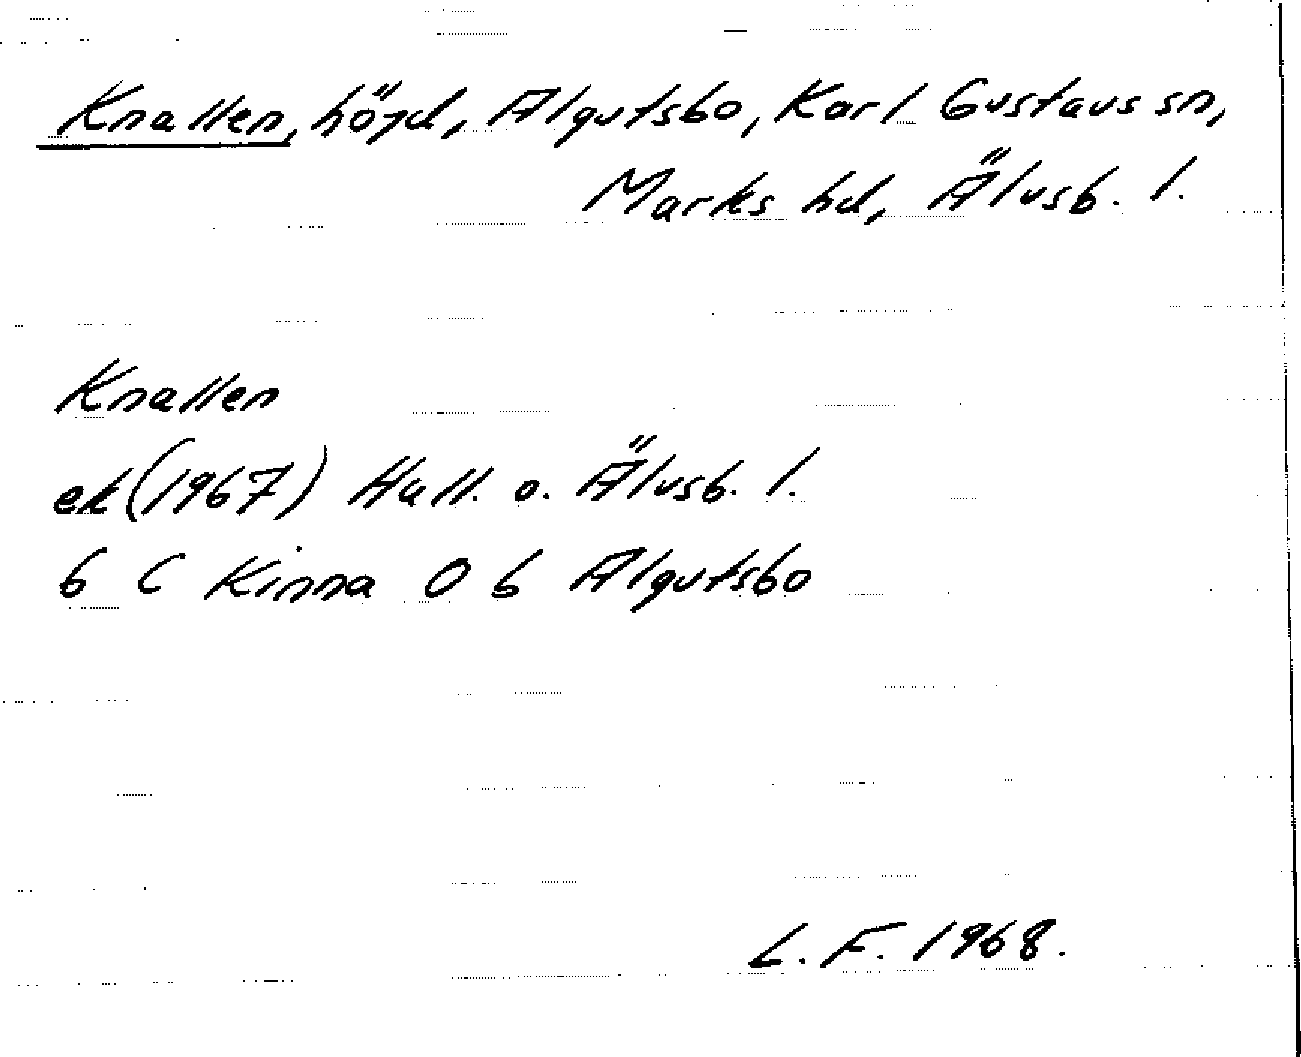 Knallen, höjd, Algutsbo, Karl Gustavs sn,
Marks hd, Älvsb. l.
Knallen
ek (1967) Hall. o. Älvsb. l.
6 C Kinna O b Algutsbo
L. F. 1968.